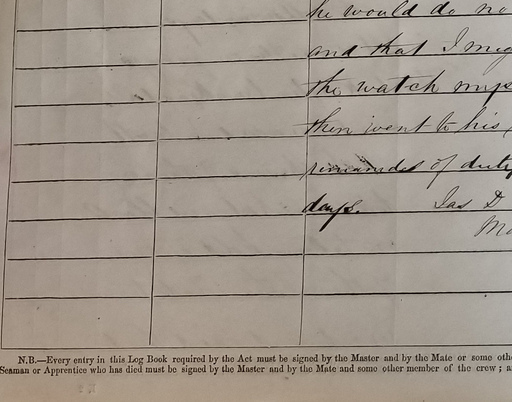 he would do no
and that I mig
the watch mys
then went to his
remainder of duty
days. Jas D
Ma
N.B.—Every entry in this Log Book required by the Act must be signed by the Master and by the Mate or some oth
Seaman or Apprentice who has died must be signed by the Master and by the Mate and some other member of the crew; a